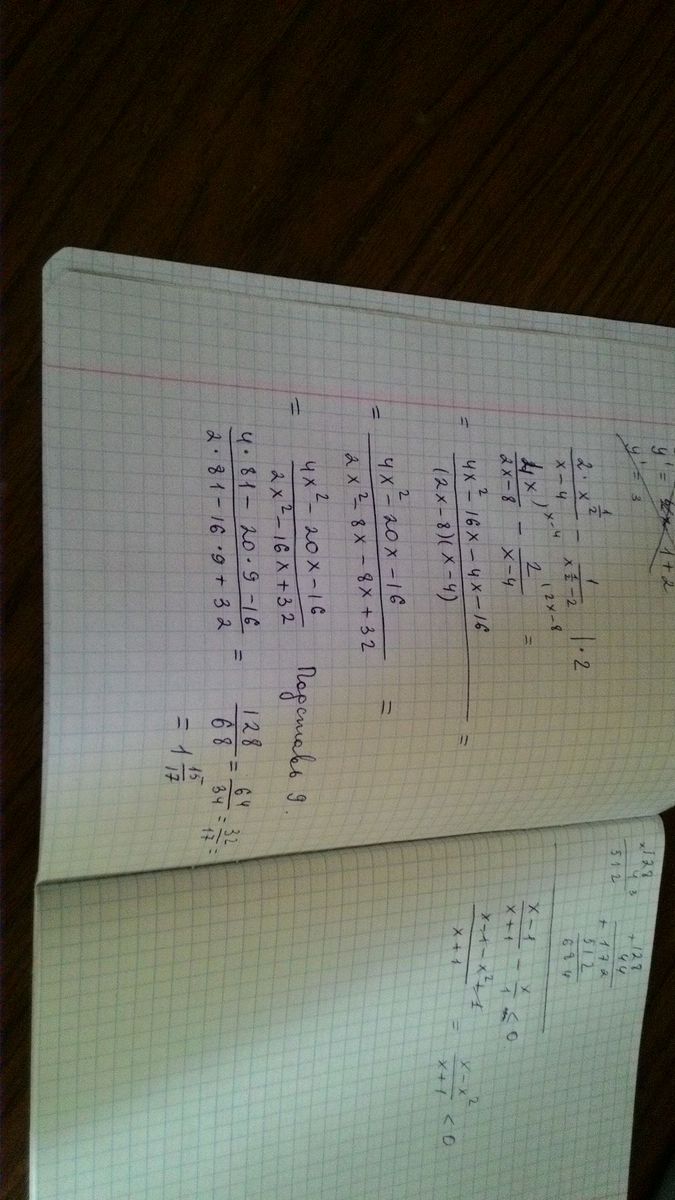 y' = 2x 1 + 2
y' = 3
2 · x^(1/2) / (x - 4) - 1 / (x^(1/2) - 2) | · 2
4x / (2x - 8) ⁾ˣ⁻⁴ - 2 / (x - 4) ⁽²ˣ⁻⁸ =
= (4x² - 16x - 4x - 16) / ((2x - 8)(x - 4)) =
= (4x² - 20x - 16) / (2x² - 8x - 8x + 32) =
= (4x² - 20x - 16) / (2x² - 16x + 32) Подставь 9.
(4 · 81 - 20 · 9 - 16) / (2 · 81 - 16 · 9 + 32) = 128/68 = 64/34 = 32/17 =
= 1 15/17
×128
4
512
+128
44
+172
512
684
(x - 1)/(x + 1) - x/1 < 0
(x - 1 - x² + 1)/(x + 1) = (x - x²)/(x + 1) < 0